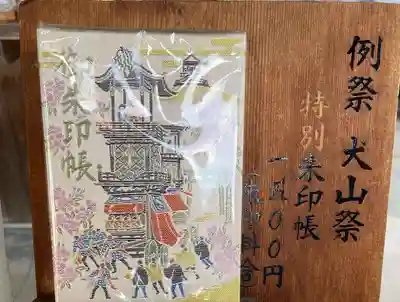 例祭 犬山祭
特別 朱印帳
一五〇〇円
朱印帳